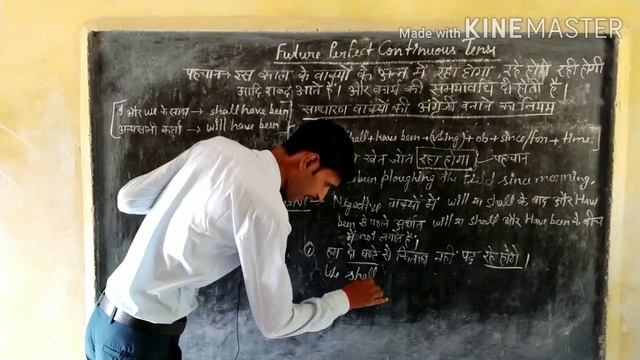 Made with KINEMASTER
Future Perfect Continuous Tense
पहचान → इस काल के वाक्यों के अन्त में रहा होगा, रहे होंगे, रही होगी
आदि शब्द आते हैं। और कार्य की समयावधि दी होती है।
I और we के साथ → shall have been
साधारण वाक्यों की अंग्रेजी बनाने का नियम
अन्य सभी कर्ता → will have been
shall + have been + (v4 ing) + ob + since/for + time.
खेत जोत रहा होगा। → पहचान
been ploughing the field since morning.
→ Negative वाक्यों में will या shall के बाद और Have
been से पहले अर्थात will या shall और Have been के बीच
में not लगाते हैं।
① हम दो घण्टे से किताब नहीं पढ़ रहे होंगे।
We shall